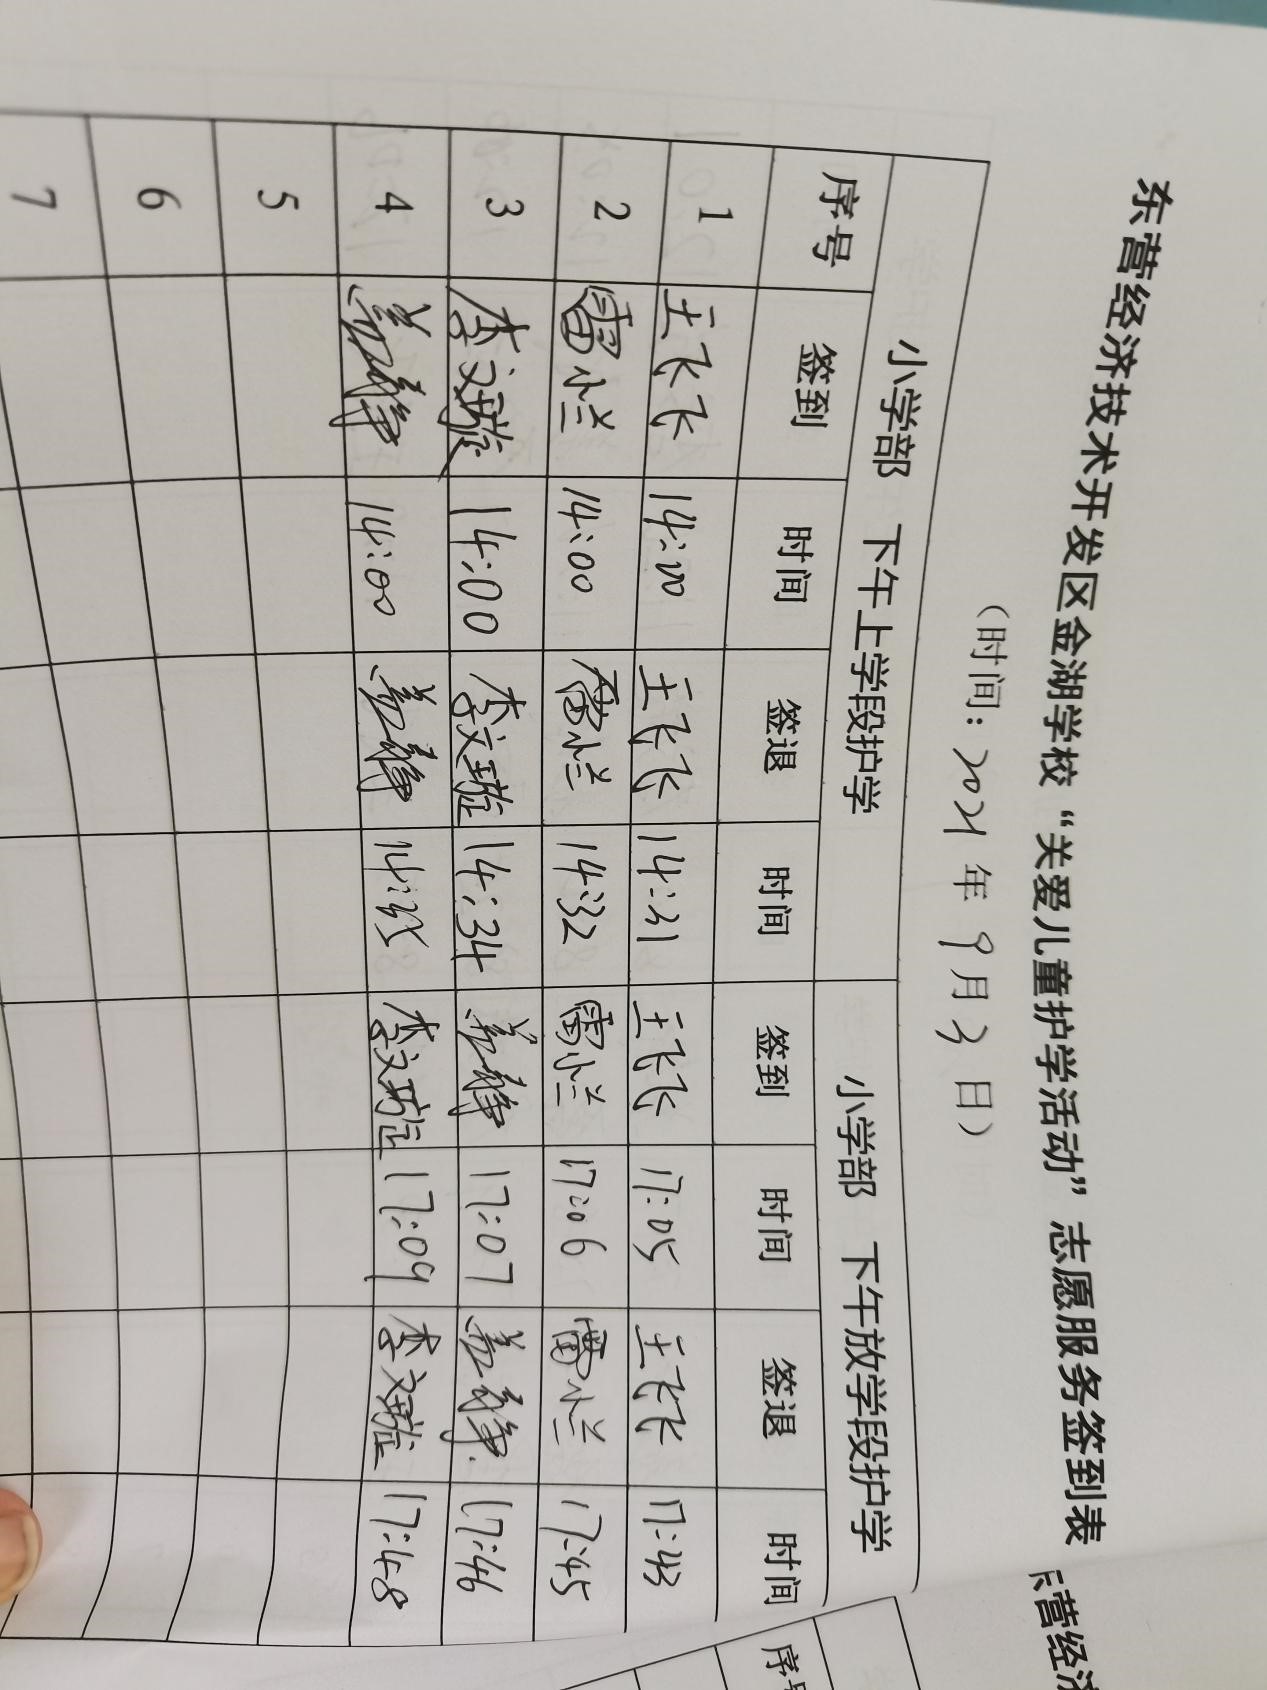 东营经济技术开发区金湖学校“关爱儿童护学活动”志愿服务签到表
（时间：2021年9月3日）
小学部 下午上学段护学 小学部 下午放学段护学
序号 签到 时间 签退 时间 签到 时间 签退 时间
1 王飞飞 14:00 王飞飞 14:31 王飞飞 17:05 王飞飞 17:43
2 雷小兰 14:00 雷小兰 14:32 雷小兰 17:06 雷小兰 17:45
3 李文璇 14:00 李文璇 14:34 17:07 17:46
4 14:00 14:35 李文璇 17:09 李文璇 17:48
5
6
7
东营经济
序号